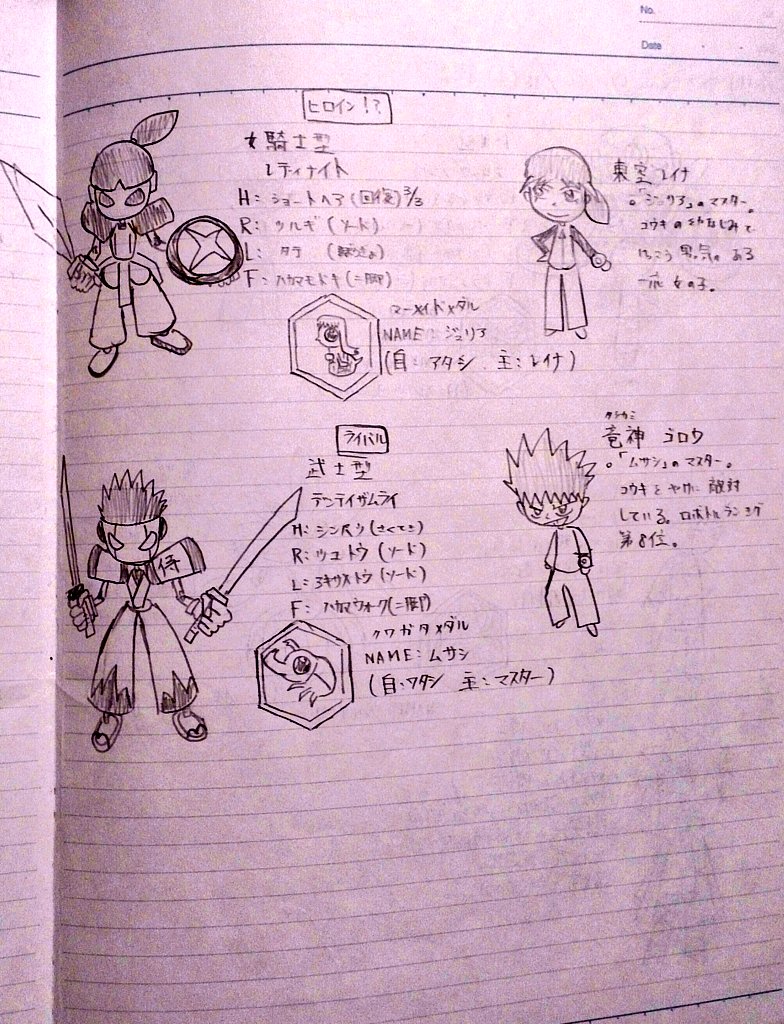 No.
Date
ヒロイン!?
女騎士型
レディナイト
H: ショートヘア (回復) 3/3
R: ツルギ (ソード)
L: タテ
F: ハカマモドキ (二脚)
マーメイドメダル
NAME: ジュリア
(自:アタシ 主:レイナ)
東空 レイナ
。「ジュリア」のマスター。
コウキの幼なじみで
けっこう男気のある
一応女の子。
ライバル
武士型
テンテイザムライ
侍
H: シンガン (さくてき)
R: ウコトウ (ソード)
L: (ソード)
F: ハカマウォーク (二脚)
クワガタメダル
NAME: ムサシ
(自:ワタシ 主:マスター)
タツカミ
竜神 ゴロウ
。「ムサシ」のマスター。
コウキとやけに敵対
している。ロボトルランキング
第8位。